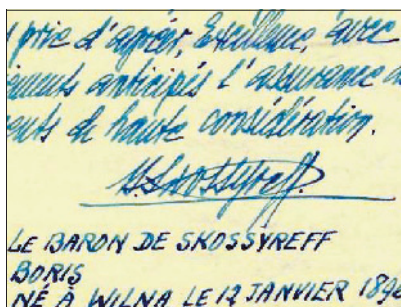 prie d'agréer, Excellence, avec
anticipés l'assurance
de haute considération.
B. Skossyreff.
LE BARON DE SKOSSYREFF
BORIS
NÉ À WILNA LE 12 JANVIER 1896